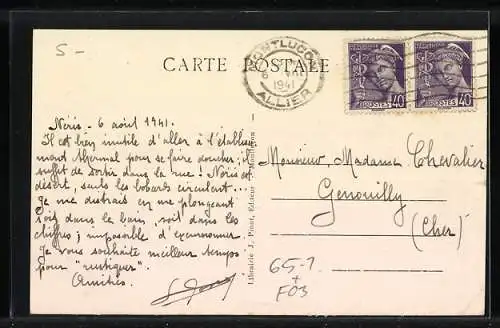 5-
CARTE POSTALE
MONTLUÇON
6
1941
ALLIER
POSTES 40
POSTES 40
Néris - 6 août 1941.
Il est bien inutile d'aller à l'établisse
ment thermal pour se faire doucher; il
suffit de sortir dans la rue! Néris est
désert, seuls les bobards circulent...
Je me distrais en me plongeant
soit dans le bain, soit dans les
chiffres; impossible d'excursionner.
Je vous souhaite meilleur temps
pour "rustiquer".
Amitiés
Librairie J.
Monsieur, Madame Chevalier
Genouilly
(Cher)
65-1
+
F03